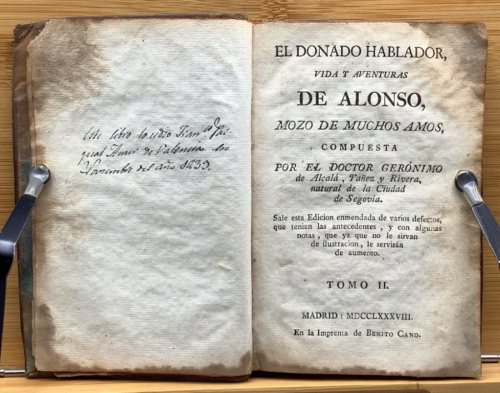 Este libro lo dio Fran.co
de Valencia en
del año 1833.
EL DONADO HABLADOR,
VIDA Y AVENTURAS
DE ALONSO,
MOZO DE MUCHOS AMOS,
COMPUESTA
POR EL DOCTOR GERÓNIMO
de Alcalá, Yañez y Rivera,
natural de la Ciudad
de Segovia.
Sale esta Edicion enmendada de varios defectos,
que tenian las antecedentes, y con algunas
notas, que ya que no le sirvan
de ilustracion, le servirán
de aumento.
TOMO II.
MADRID: MDCCLXXXVIII.
En la Imprenta de BENITO CANO.